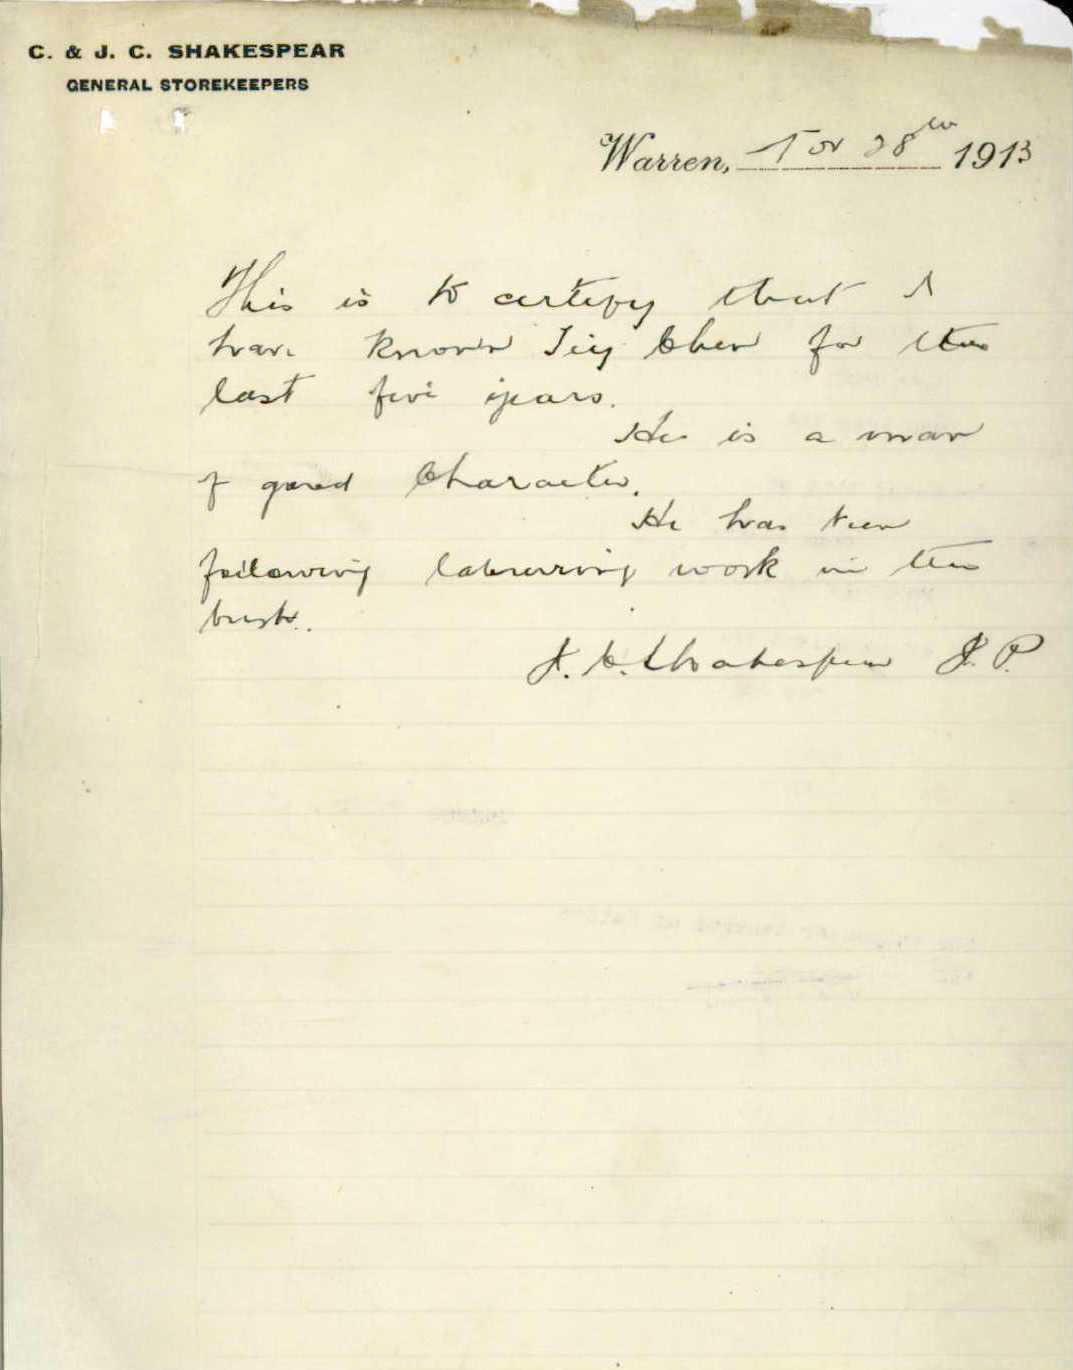 C. & J. C. SHAKESPEAR
GENERAL STOREKEEPERS
Warren, Nov 28th 1913
This is to certify that I
have known Chen for the
last five years.
He is a man
of good Character.
He has been
following labouring work in the
bush.
J. C. Shakespear J.P.